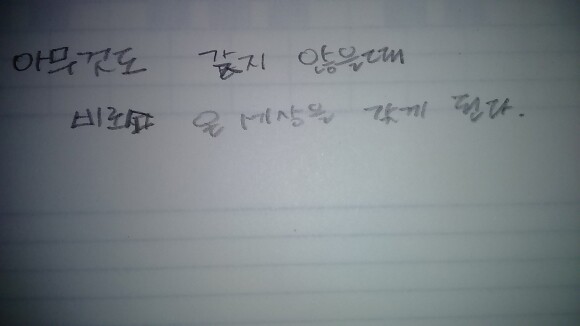 아무것도 갖지 않을때
비로소 온 세상을 갖게 된다.